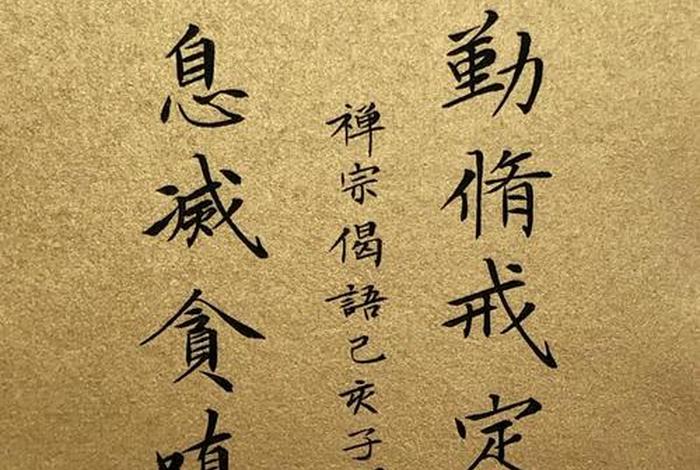 勤脩戒定
禅宗偈語己亥子
息滅貪嗔